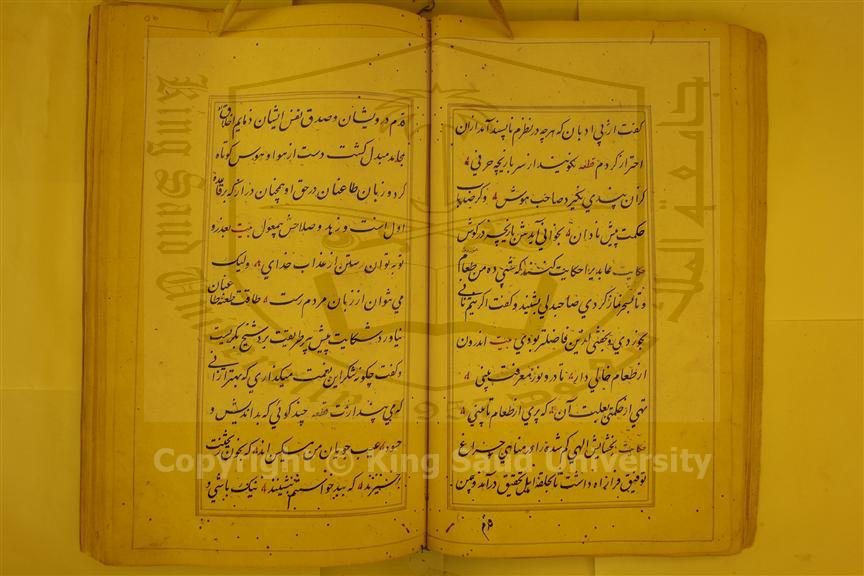 گفت از بی ادبان که هرچه در نظرم ناپسند آمد از ان
احتراز کردم قطعه نگویند از سر بازیچه حرفی
کزان پندی نگیرد صاحب هوش وکر صد باب
حکمت پیش نادان بخوانی آیدش بازیچه در کوش
حکایت عابدی را حکایت کنند که شبی ده من طعام
و تا سحر نماز کردی صاحبدلی بشنید و گفت اکر نیم نانی
بخوردی و بخفتی ازین فاضلتر بودی بیت اندرون
از طعام خالی دار تا درو نور معرفت بینی
تهی از حکمتی بعلت آن که پری از طعام تا بینی
حکایت بخشایش الهی کم شده را در مناهی چراغ
توفیق فرا راه داشت تا بحلقه اهل تحقیق درآمد و بیمن
قدم درویشان و صدق نفس ایشان ذمایم اخلاق
محامد مبدل کشت دست از هوا و هوس کوتاه
کرد و زبان طاعنان در حق او همچنان دراز که بر قاعده
اول است و زهد و صلاحش معول بیت بعذر و
توبه توان رستن از عذاب خدای ولیک
می نتوان از زبان مردم رست طاقت طعنه طاعنان
نیاورد شکایت پیش پیر طریقت برد شیخ بکریست
و کفت چکونه شکر این نعمت میکذاری که بهتر از انی
که می پندارندت قطعه چند کوئی که بداندیش و
حسود عیب جویان من مسکین اند که بخون ریختنت
برخیزند که ببد خواستنم نشینند نیک باشی و
Copyright © King Saud University
King Saud University
جامعة الملك
1957